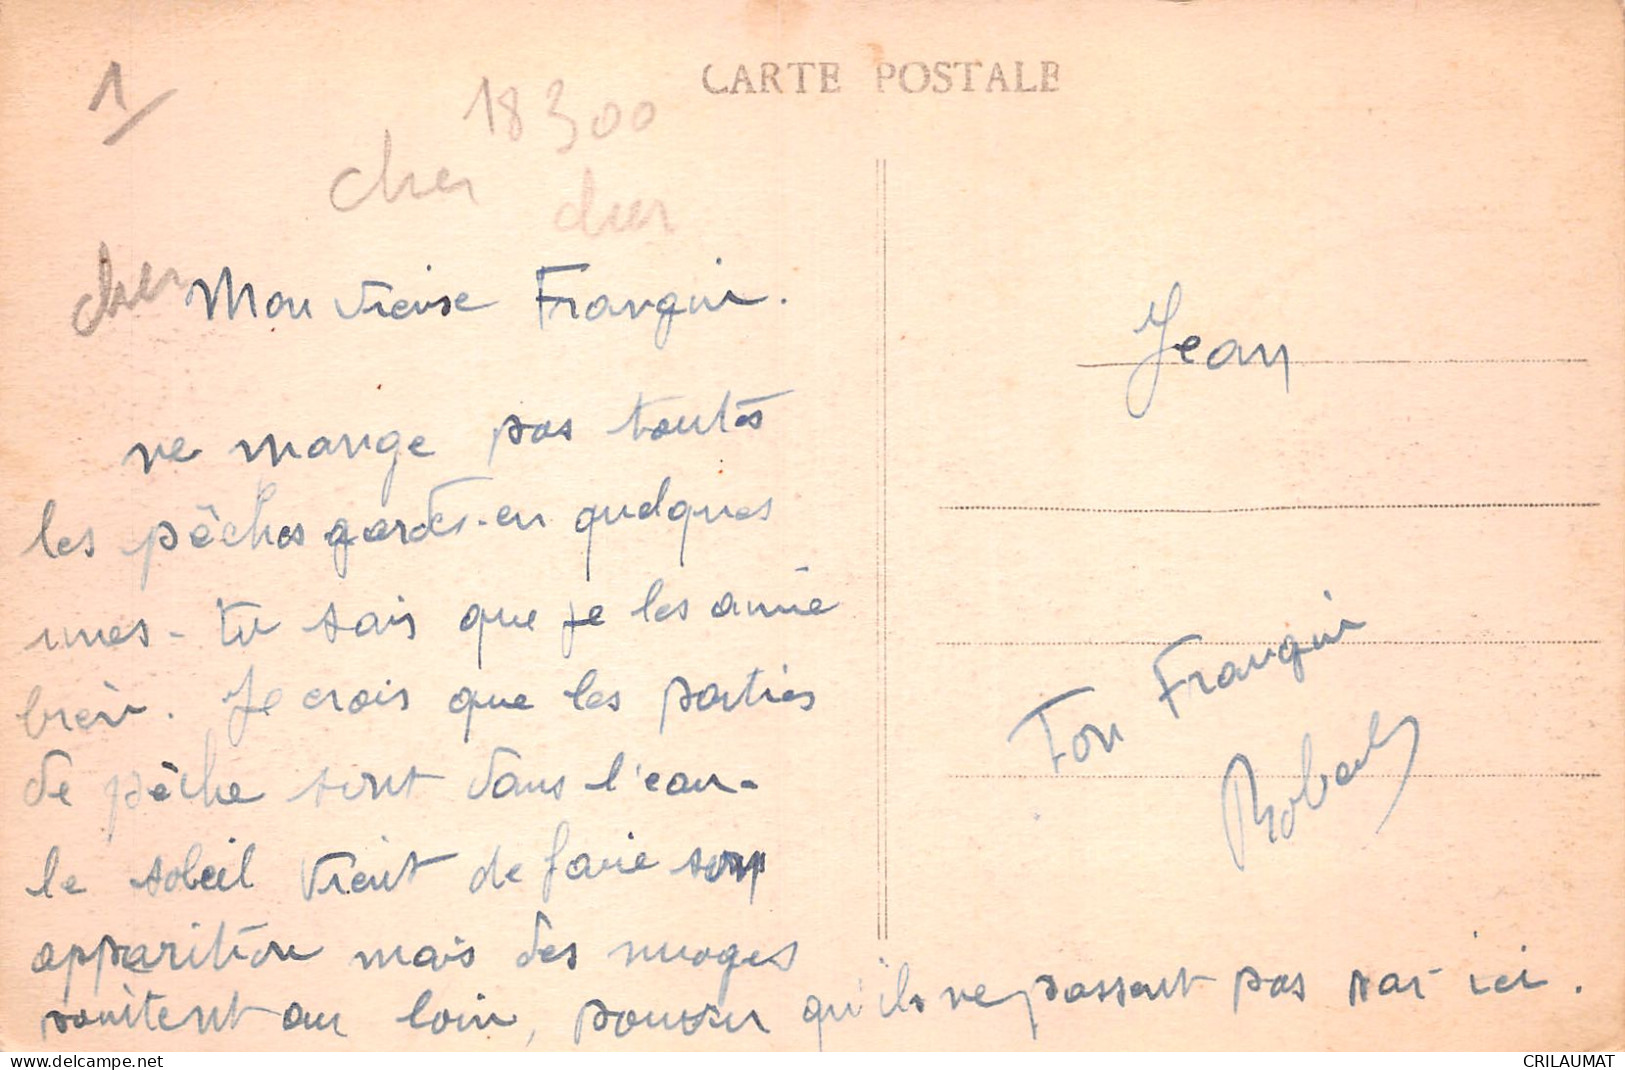 CARTE POSTALE
1
18300
cher
cher
cher
Mon vieux Frangin.
ne mange pas toutes
les pêches gardes-en quelques
unes - tu sais que je les aime
bien. Je crois que les parties
de pêche sont dans l'eau -
le soleil vient de faire son
apparition mais des nuages
au loin, pourvu qu'ils ne passent pas par ici.
Jean
Ton Frangin
delcampe.net
CRILAUMAT